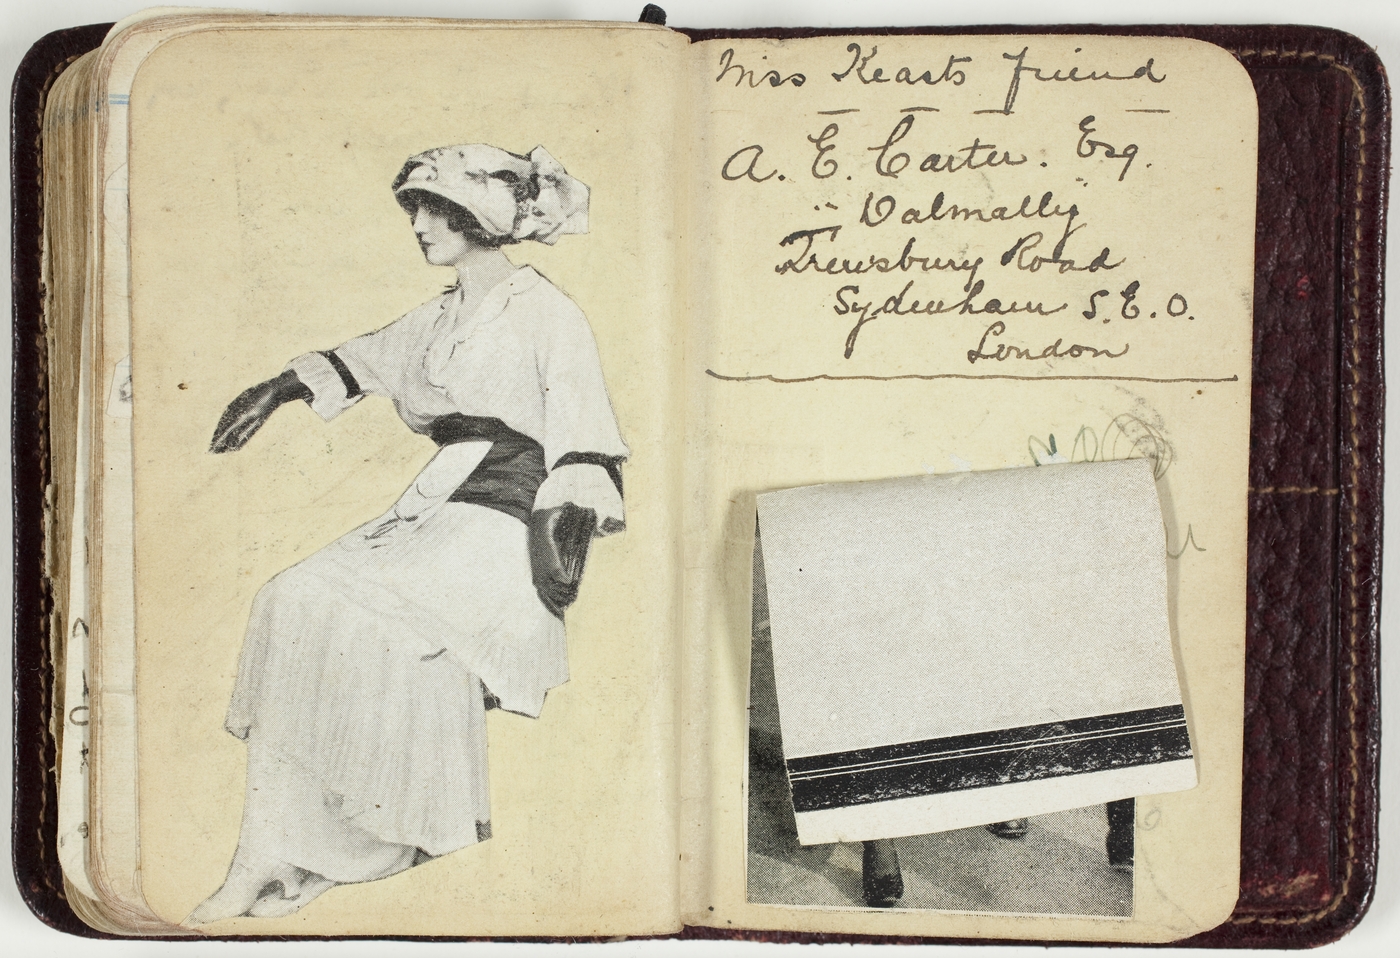 Miss Keasts friend
A. E. Carter. Esq.
" Dalmally
Trewsbury Road
Sydenham S.E.O.
London